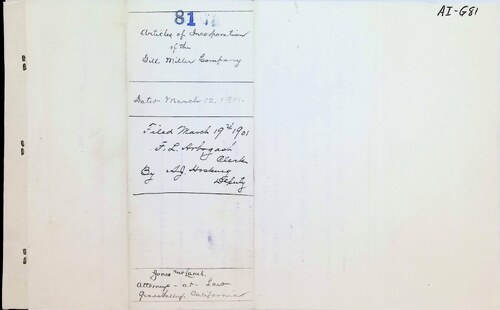 AI-G81
81
Articles of Incorporation
of the
Gill Miller Company
Dated March 12, 1901.
Filed March 19th 1901
F. L. Arbogast
Clerk
By A.J. Hosking
Deputy
Jones
Attorneys - at - Law
Grass Valley, California